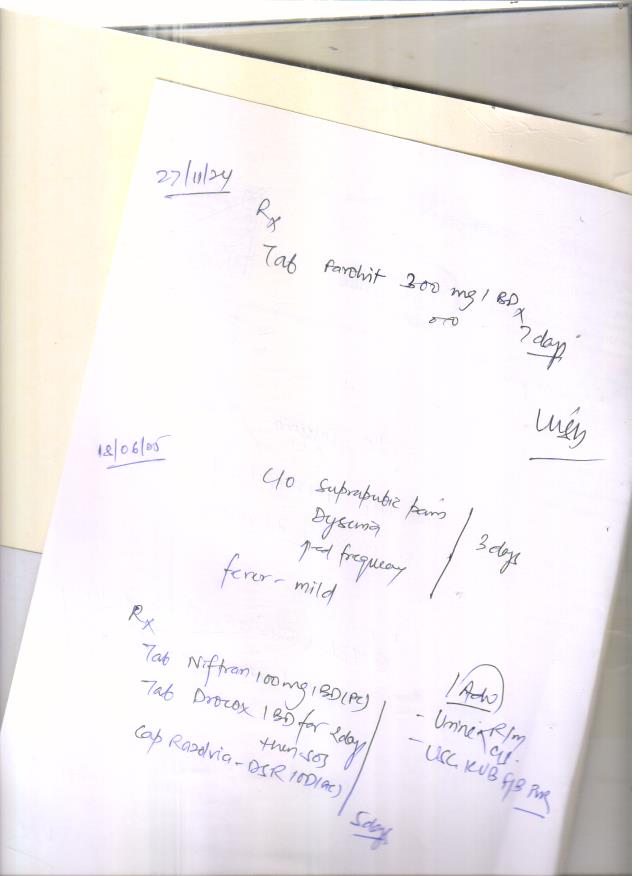 27/11/24
Rx
Tab Farohit 300 mg 1 BD x
7 days
18/06/25
C/o suprapubic pain
Dysuria
↑ed frequency
3 days
fever - mild
Rx
Tab Niftran 100 mg 1 BD (PC)
Tab Drocox 1 BD for 2 days
then SOS
Cap Razolvia - DSR 1 OD (AC)
5 days
Adv
- Urine R/m
C/s.
- USG KUB